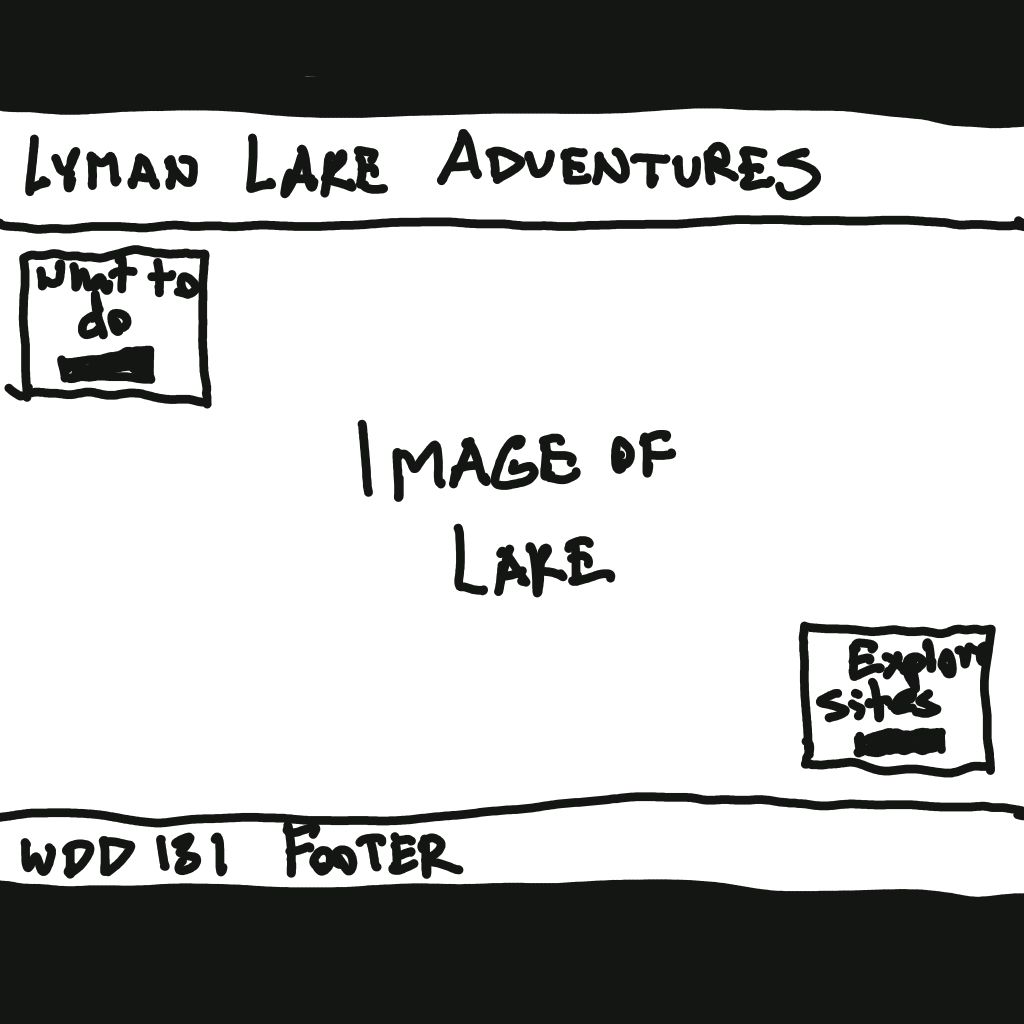 LYMAN LAKE ADVENTURES
What to
do
IMAGE OF
LAKE
Explore
sites
WDD 131 FOOTER